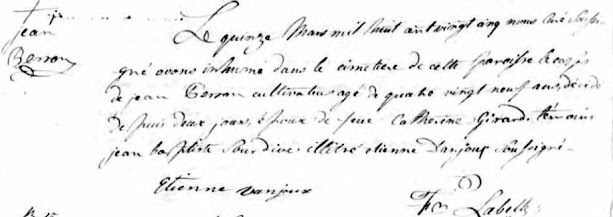 jean
Le quinze Mars mil huit cent vingt cinq nous curé sousi
gné avons inhumé dans le cimetiere de cette paroisse le corps
de jean cultivateur agé de quatre vingt neuf ans, décédé
depuis deux jours, époux de feue Catherine Girard. témoins
jean baptiste illitré etienne Danjou soussigné.
Etienne danjoux
Labelle